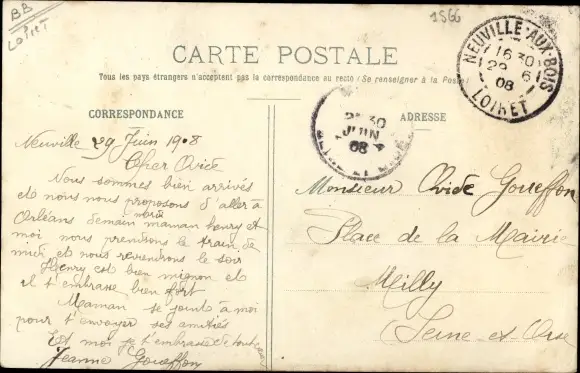 BB
LOIRET
1566
CARTE POSTALE
Tous les pays étrangers n'acceptent pas la correspondance au recto (Se renseigner à la Poste)
NEUVILLE-AUX-BOIS
16 30
29 6
08
LOIRET
30
JUIN
08
CORRESPONDANCE
ADRESSE
Neuville 29 Juin 1908
Cher Ovide
Nous sommes bien arrivés
et nous nous proposons d'aller à
Orléans demain maman henry et
moi nous prendrons le train de
midi et nous reviendrons le soir
Henry est bien mignon et
il t'embrasse bien fort
Maman se joint à moi
pour t'envoyer ses amitiés
Et moi je t'embrasse de tout
Jeanne Goueffon
Monsieur Ovide Goueffon
Place de la Mairie
Milly
Seine-et-Oise